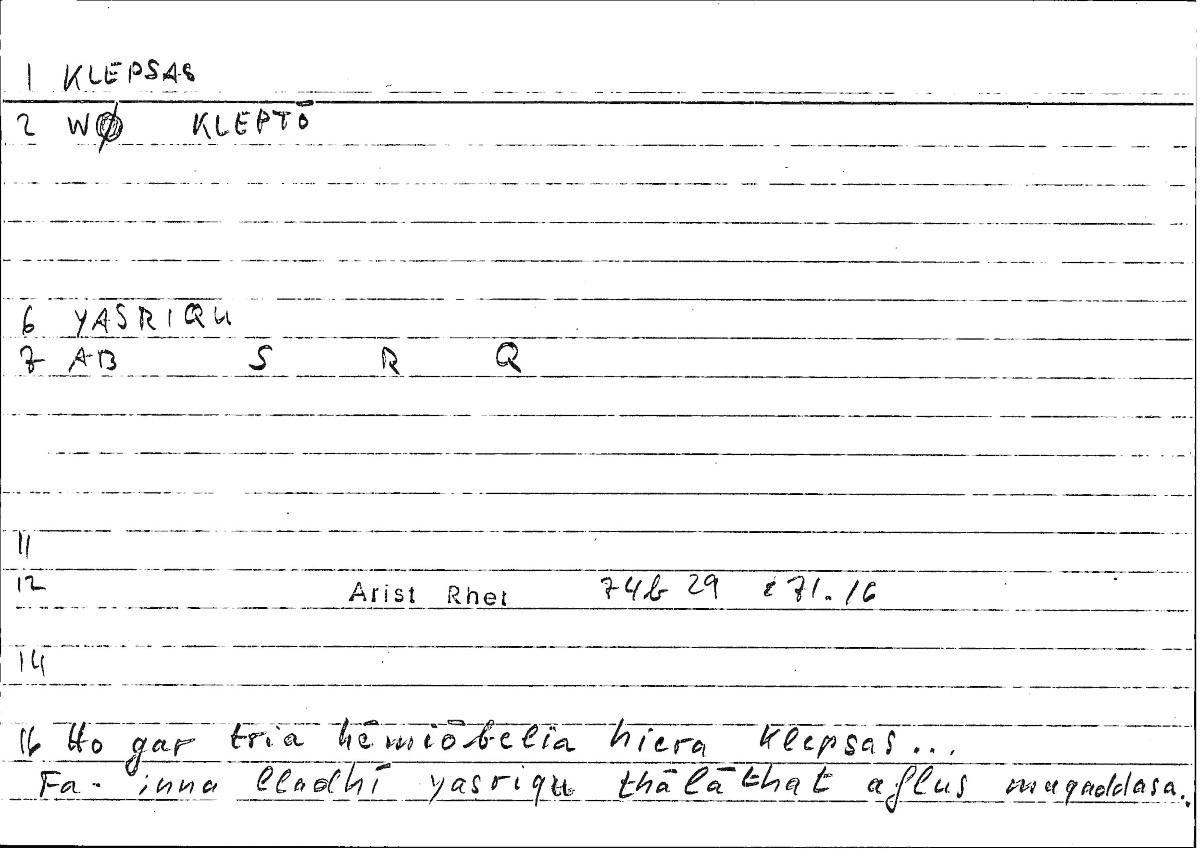 1 KLEPSAS
2 WØ KLEPTŌ
6 YASRIQU
7 AB S R Q
11
12 Arist Rhet 74b 29 271.16
14
16 Ho gar tria hēmiōbelia hiera klepsas...
Fa- inna lladhī yasriqu thālāthat aflus muqaddasa.